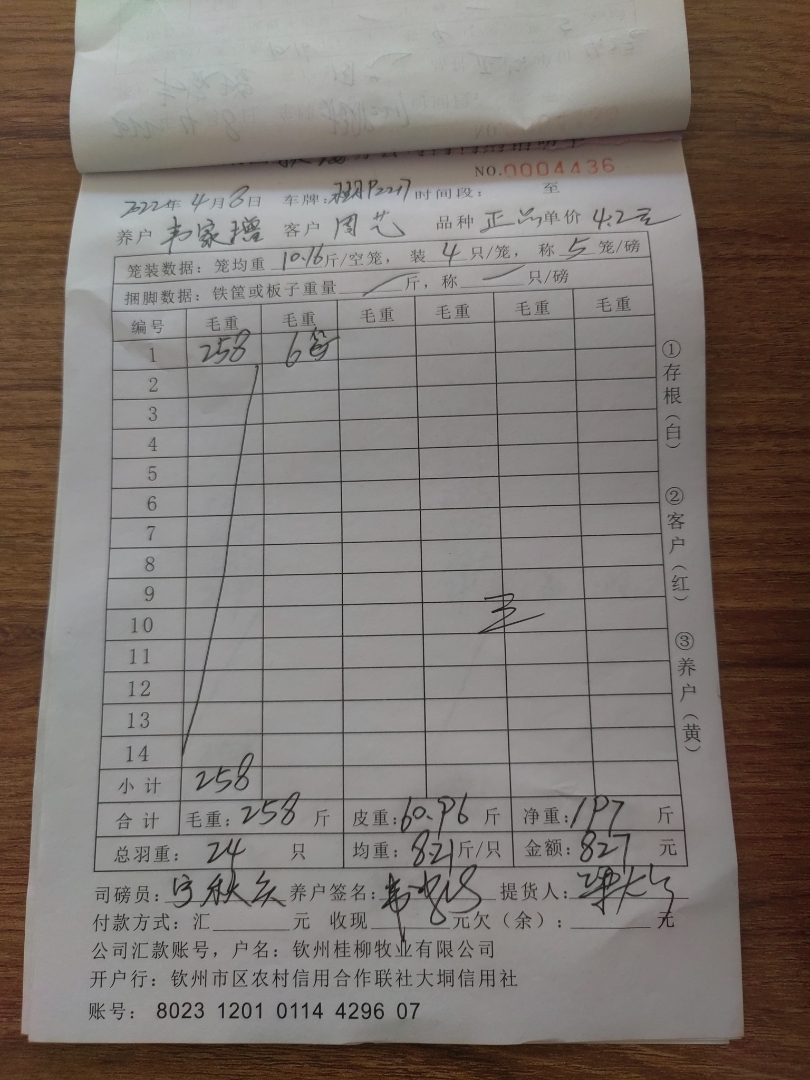 NO.0004436
2022年4月8日 车牌: 时间段: 至
养户 韦家增 客户 周艺 品种 正品 单价 4.2元
笼装数据：笼均重 10.16 斤/空笼， 装 4 只/笼， 称 5 笼/磅
捆脚数据：铁筐或板子重量 斤，称 只/磅
编号 毛重 毛重 毛重 毛重 毛重 毛重
1 258 6笼
2
3
4
5
6
7
8
9
10
11
12
13
14
小计 258
合计 毛重：258 斤 皮重：60.96 斤 净重：197 斤
总羽重： 24 只 均重：8.21 斤/只 金额：827 元
司磅员： 养户签名： 提货人：
付款方式：汇 元 收现 元欠（余）： 元
公司汇款账号，户名：钦州桂柳牧业有限公司
开户行：钦州市区农村信用合作联社大垌信用社
账号： 8023 1201 0114 4296 07
①存根（白）
②客户（红）
③养户（黄）